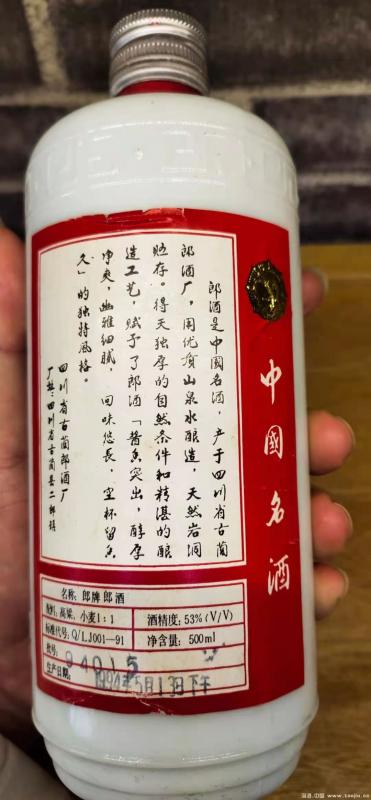 中國名酒
郎酒是中国名酒，产于四川省古蔺
郎酒厂，用优质山泉水酿造，天然岩洞
贮存。得天独厚的自然条件和精湛的酿
造工艺，赋予了郎酒「酱香突出，醇厚
净爽，幽雅细腻，回味悠长，空杯留香
久」的独特风格。
四川省古蔺郎酒厂
厂址：四川省古蔺县二郎镇
名称: 郎牌郎酒
配料: 高粱、小麦1:1 酒精度: 53% (V/V)
标准代号: Q/LJ001—91 净含量: 500ml
批号: 94015
生产日期: 1994年5月13日下午